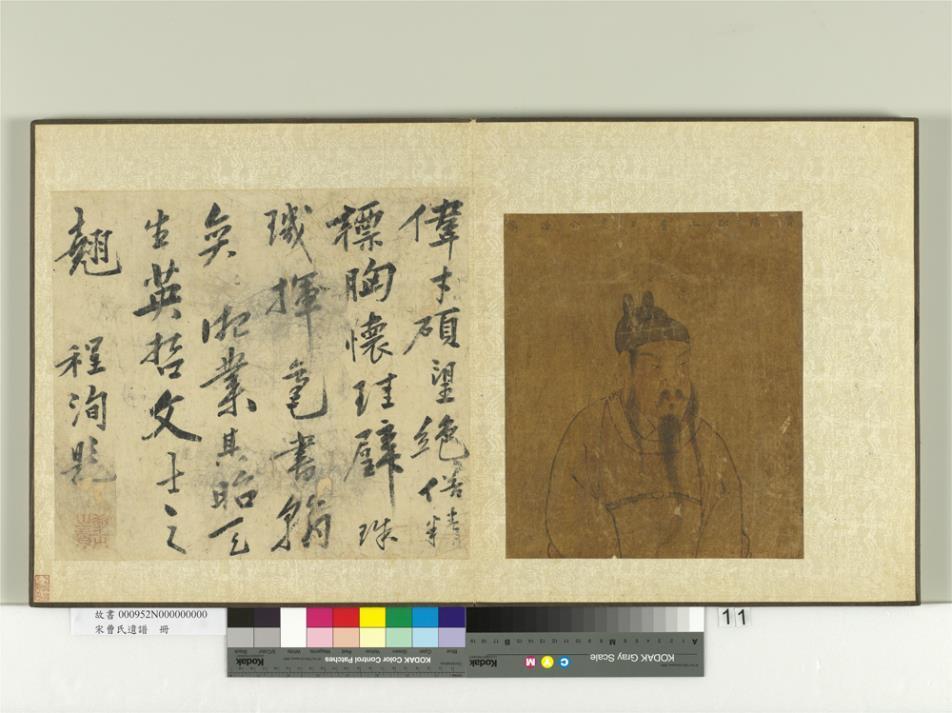 偉才碩望絕俗精
標胸懷珪璧珠
璣揮毫書翰
業其昭天
生英哲文士之
翹 程洵題
故書 000952N000000000
宋曹氏遺譜 冊
KODAK Color Control Patches
Kodak
KODAK Gray Scale
Kodak
C Y M
11